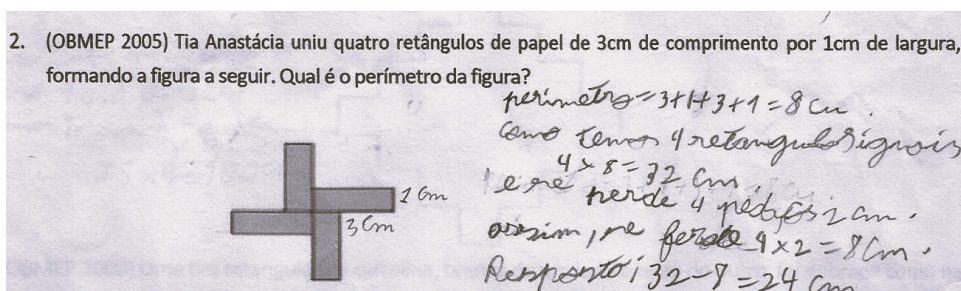 2. (OBMEP 2005) Tia Anastácia uniu quatro retângulos de papel de 3cm de comprimento por 1cm de largura,
formando a figura a seguir. Qual é o perímetro da figura?
perimetro = 3+1+3+1 = 8 cm.
Como temos 4 retangulos iguais
4 x 8 = 32 cm.
e se perde 4 pedaços 2 cm.
1 cm
3 cm
assim, se perde 4 x 2 = 8 cm.
Resposta: 32-8 = 24 cm